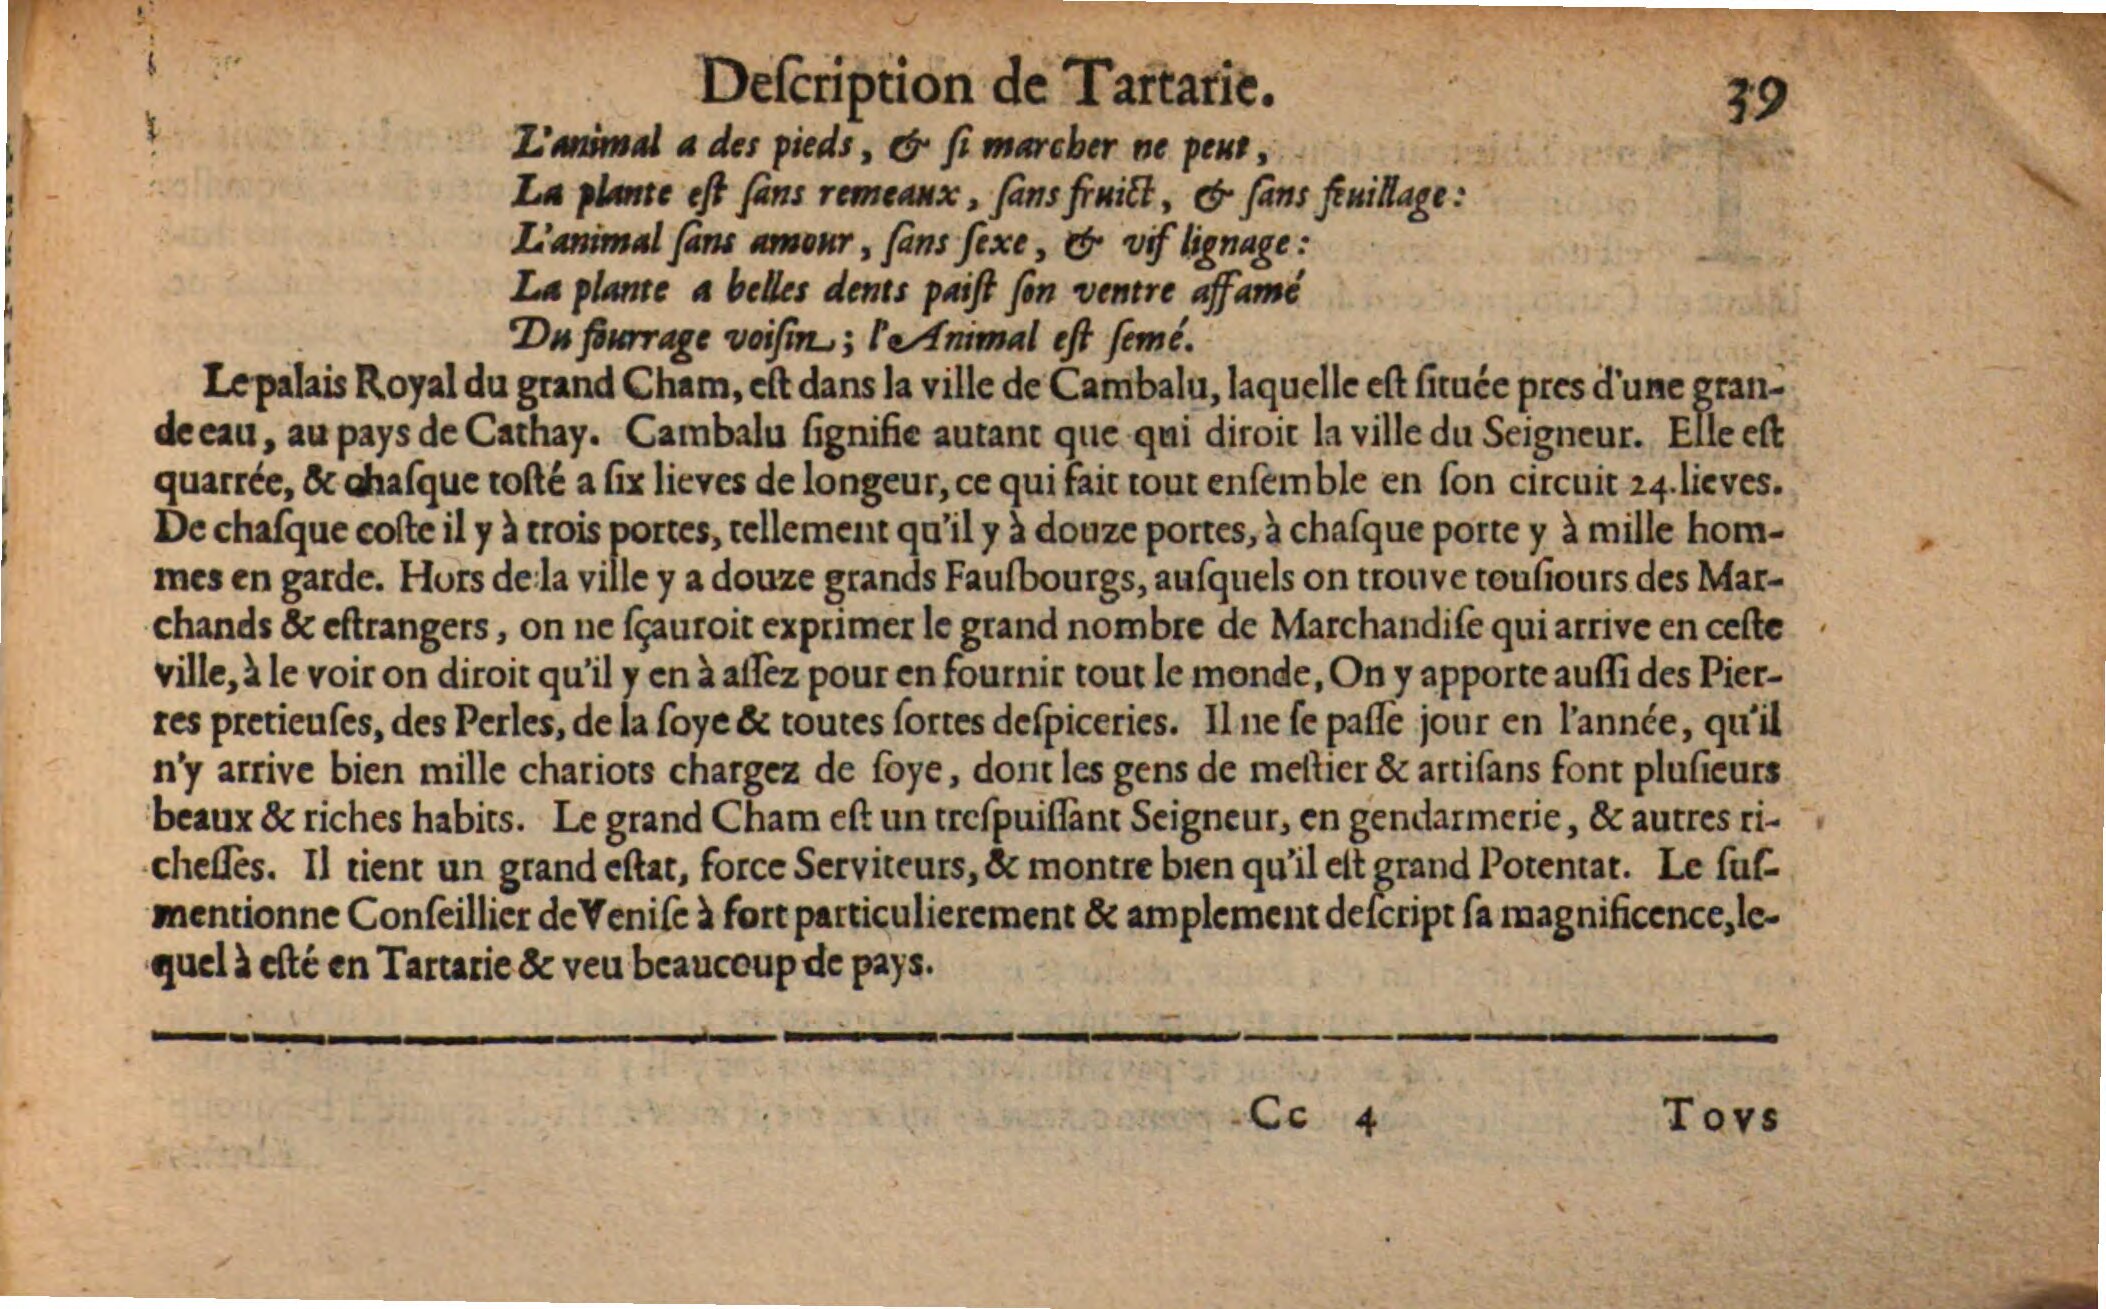 Deſcription de Tartarie. 39
L'animal a des pieds, & ſi marcher ne peut,
La plante eſt ſans remeaux, ſans fruict, & ſans feuillage:
L'animal ſans amour, ſans ſexe, & vif lignage:
La plante a belles dents paiſt ſon ventre affamé
Du fourrage voiſin; l'Animal eſt ſemé.
Le palais Royal du grand Cham, eſt dans la ville de Cambalu, laquelle eſt ſituée pres d'une gran-
de eau, au pays de Cathay. Cambalu ſignifie autant que qui diroit la ville du Seigneur. Elle eſt
quarrée, & chaſque toſté a ſix lieves de longeur, ce qui fait tout enſemble en ſon circuit 24. lieves.
De chaſque coſte il y à trois portes, tellement qu'il y à douze portes, à chaſque porte y à mille hom-
mes en garde. Hors de la ville y a douze grands Fauſbourgs, auſquels on trouve touſiours des Mar-
chands & eſtrangers, on ne ſçauroit exprimer le grand nombre de Marchandiſe qui arrive en ceſte
ville, à le voir on diroit qu'il y en à aſſez pour en fournir tout le monde, On y apporte auſſi des Pier-
res pretieuſes, des Perles, de la ſoye & toutes ſortes deſpiceries. Il ne ſe paſſe jour en l'année, qu'il
n'y arrive bien mille chariots chargez de ſoye, dont les gens de meſtier & artiſans font pluſieurs
beaux & riches habits. Le grand Cham eſt un treſpuiſſant Seigneur, en gendarmerie, & autres ri-
cheſſes. Il tient un grand eſtat, force Serviteurs, & montre bien qu'il eſt grand Potentat. Le ſuſ-
mentionne Conſeillier de Veniſe à fort particulierement & amplement deſcript ſa magnificence, le-
quel à eſté en Tartarie & veu beaucoup de pays.
Cc 4 Tovs